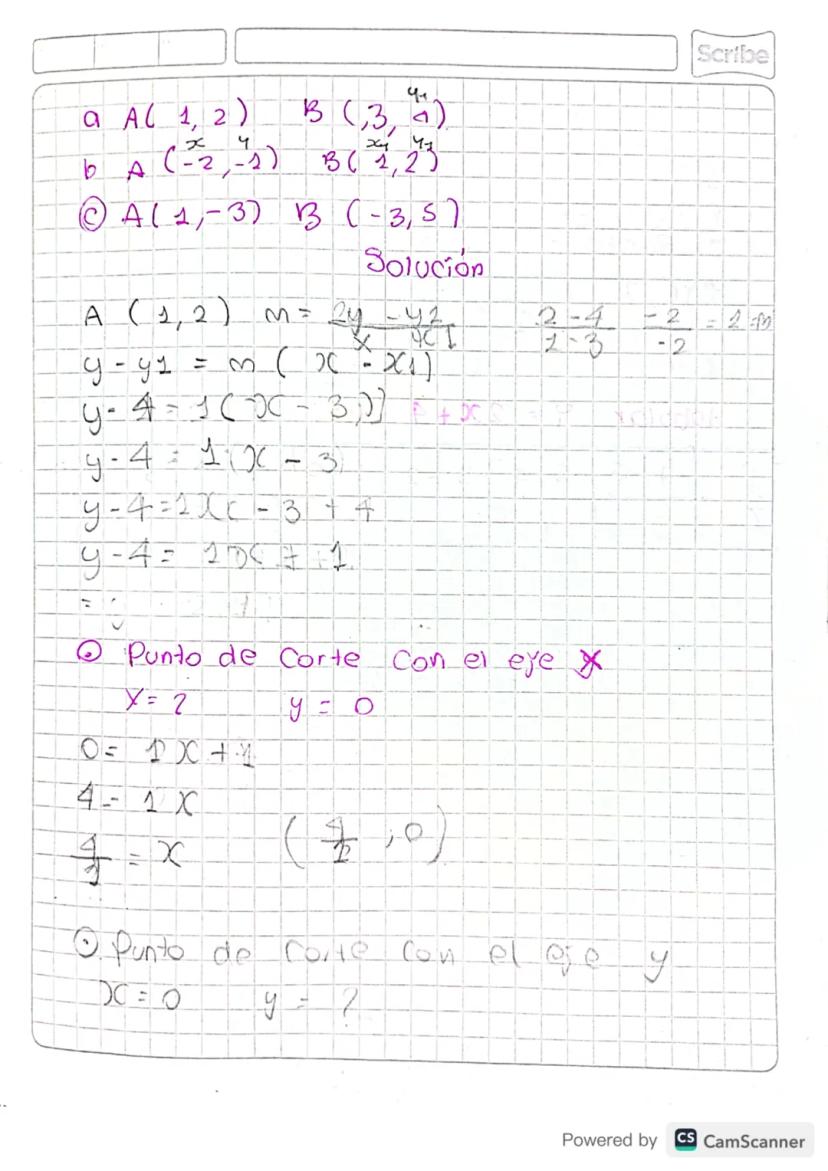 Scribe
y1
a A( 1, 2) B (,3, 4)
x y x1 y1
b A (-2,-1) B( 1,2)
c A(1,-3) B (-3,5)
Solución
A (1,2) m = 2y - y2 / x x1 2-4 / 1-3 -2 / -2 = 1 = m
y - y1 = m ( x - x1)
y- 4 = 1(x - 3)]
y-4 = 1(x - 3
y-4=1x - 3 + 4
y-4= 1x + 1
=
Punto de corte con el eje x
x= ? y = 0
0= 1x + 1
4 = 1x
4/1 = x (4/1 ,0)
Punto de corte con el eje y
x = 0 y = ?
Powered by CS CamScanner